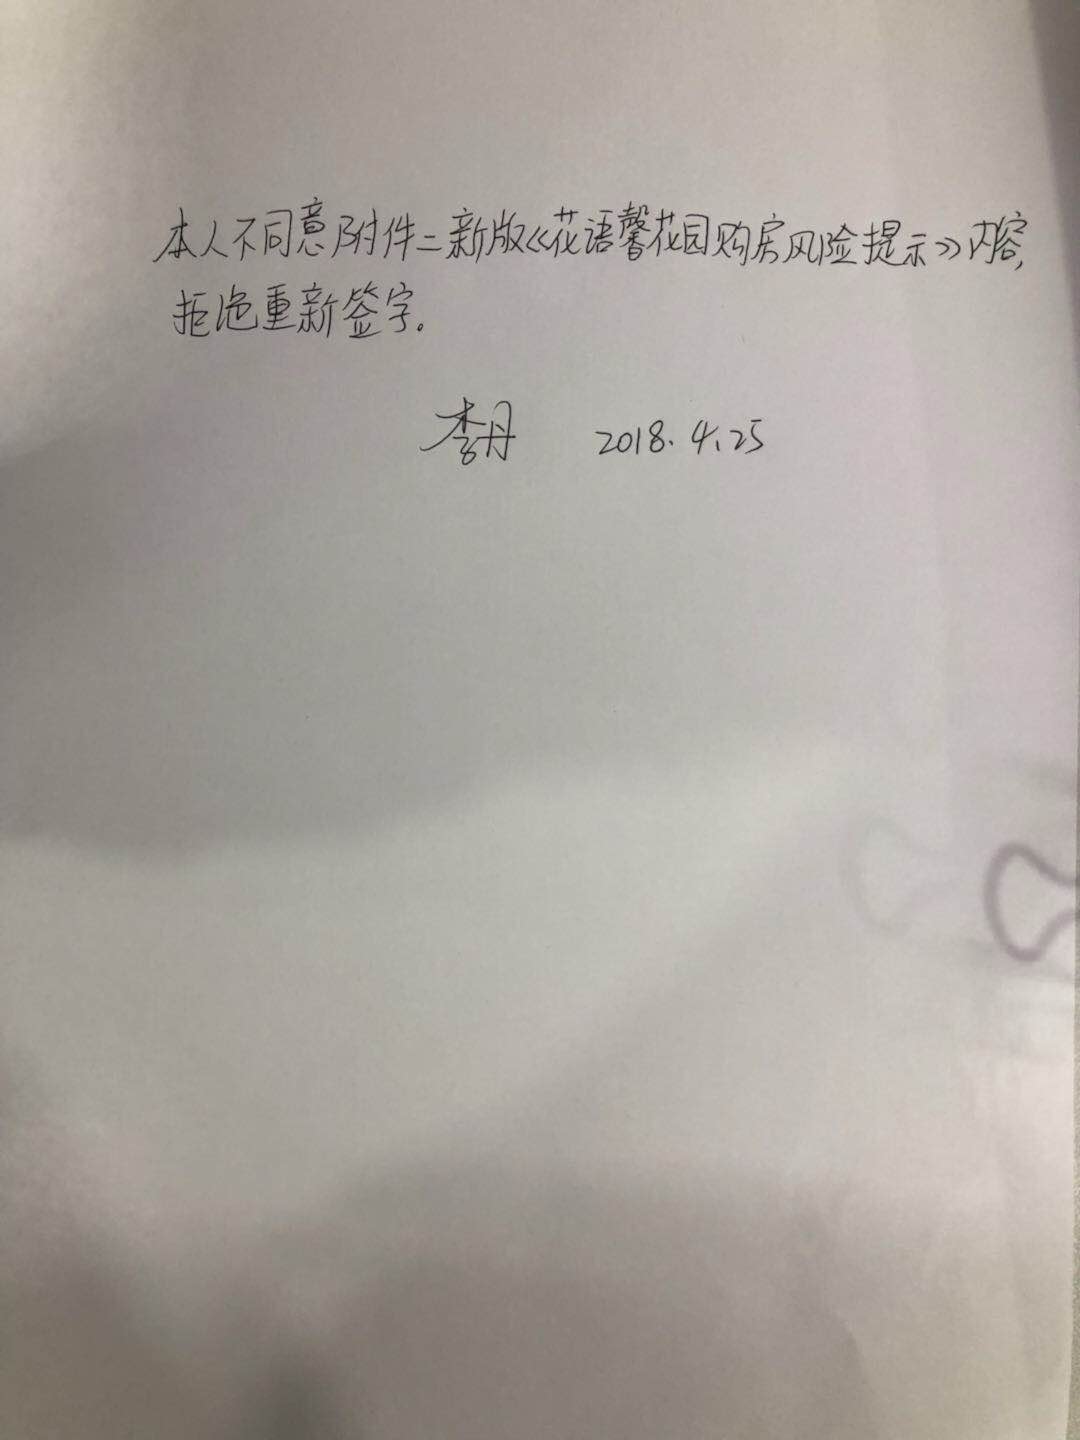 本人不同意附件二新版《花语馨花园购房风险提示》内容,
拒绝重新签字。
李丹 2018.4.25